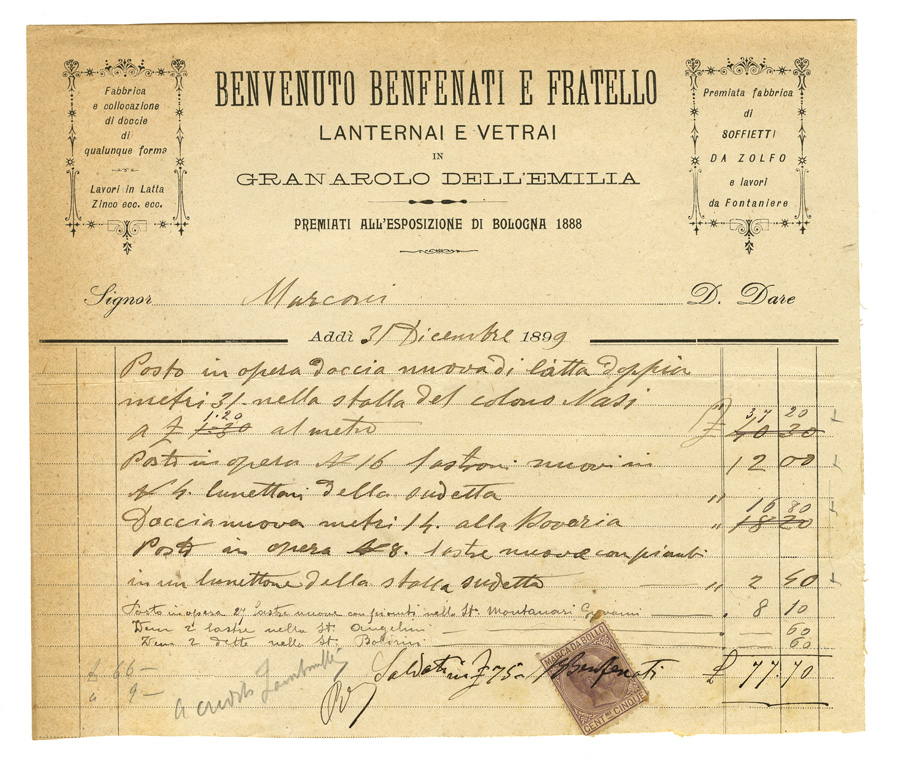 Fabbrica
e collocazione
di doccie
di
qualunque forma
Lavori in Latta
Zinco ecc. ecc.
BENVENUTO BENFENATI E FRATELLO
LANTERNAI E VETRAI
IN
GRANAROLO DELL'EMILIA
PREMIATI ALL'ESPOSIZIONE DI BOLOGNA 1888
Premiata fabbrica
di
SOFFIETTI
DA ZOLFO
e lavori
da Fontaniere
Signor Marconi D. Dare
Addì 31 Dicembre 1899
Posto in opera doccia nuova di latta doppia
metri 31. nella stalla del colono Nasi
1.20 37 20
a £ 1.30 al metro £ 40 30
Posto in opera N 16 lastroni nuovi in 12 00
N 4. lunettoni della sudetta "
16 80
Doccia nuova metri 14. alla Boveria " 18 20
Posto in opera N 8. lastre nuove con pianti
in un lunettone della stalla sudetta " 2 40
Posto in opera 27 lastre nuove con pianti nella St. Montanari Giovanni " 8 10
Dem 2 lastre nella St. Angelini 60
Dem 2 dette nella St. 60
£ 66 –
a 9 –
a credito
Saldati in £ 75 – B Benfenati £ 77.70
MARCA DA BOLLO
CENT.MI CINQUE